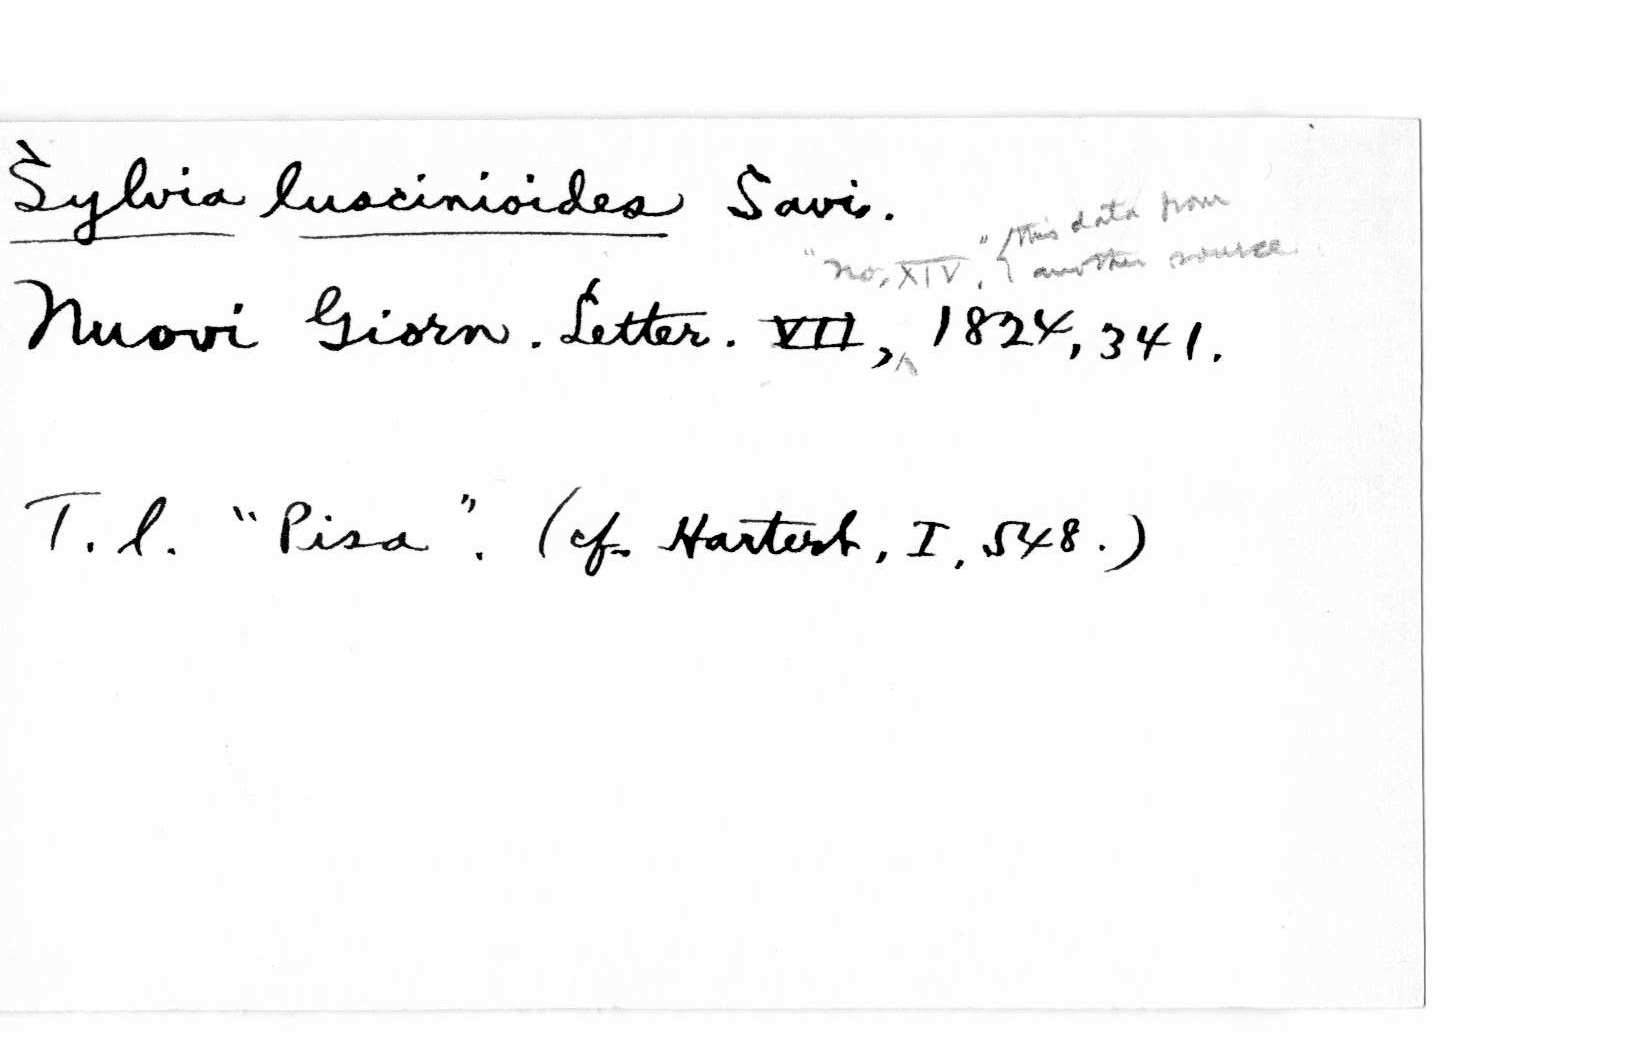 Sylvia luscinioides Savi.
"No, XIV," { this data from
another source
Nuovi Giorn. Letter. VII, 1824, 341.
T. l. "Pisa". (cf. Hartert, I, 548.)